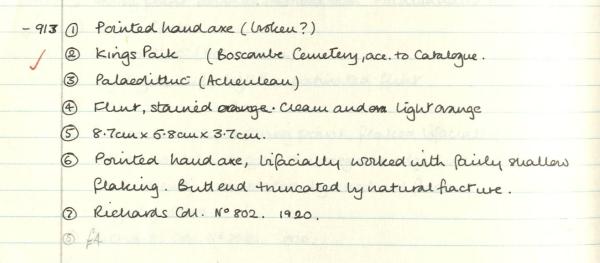 -913 ① Pointed handaxe (broken?)
② Kings Park (Boscombe Cemetery, acc. to Catalogue.
③ Palaeolithic (Acheulean)
④ Flint, stained orange. Cream and or light orange
⑤ 8.7cm x 5.8cm x 3.7cm.
⑥ Pointed handaxe, bifacially worked with fairly shallow
flaking. Butt end truncated by natural fracture.
⑦ Richards Coll. Nº 802. 1920.
⑧ £4